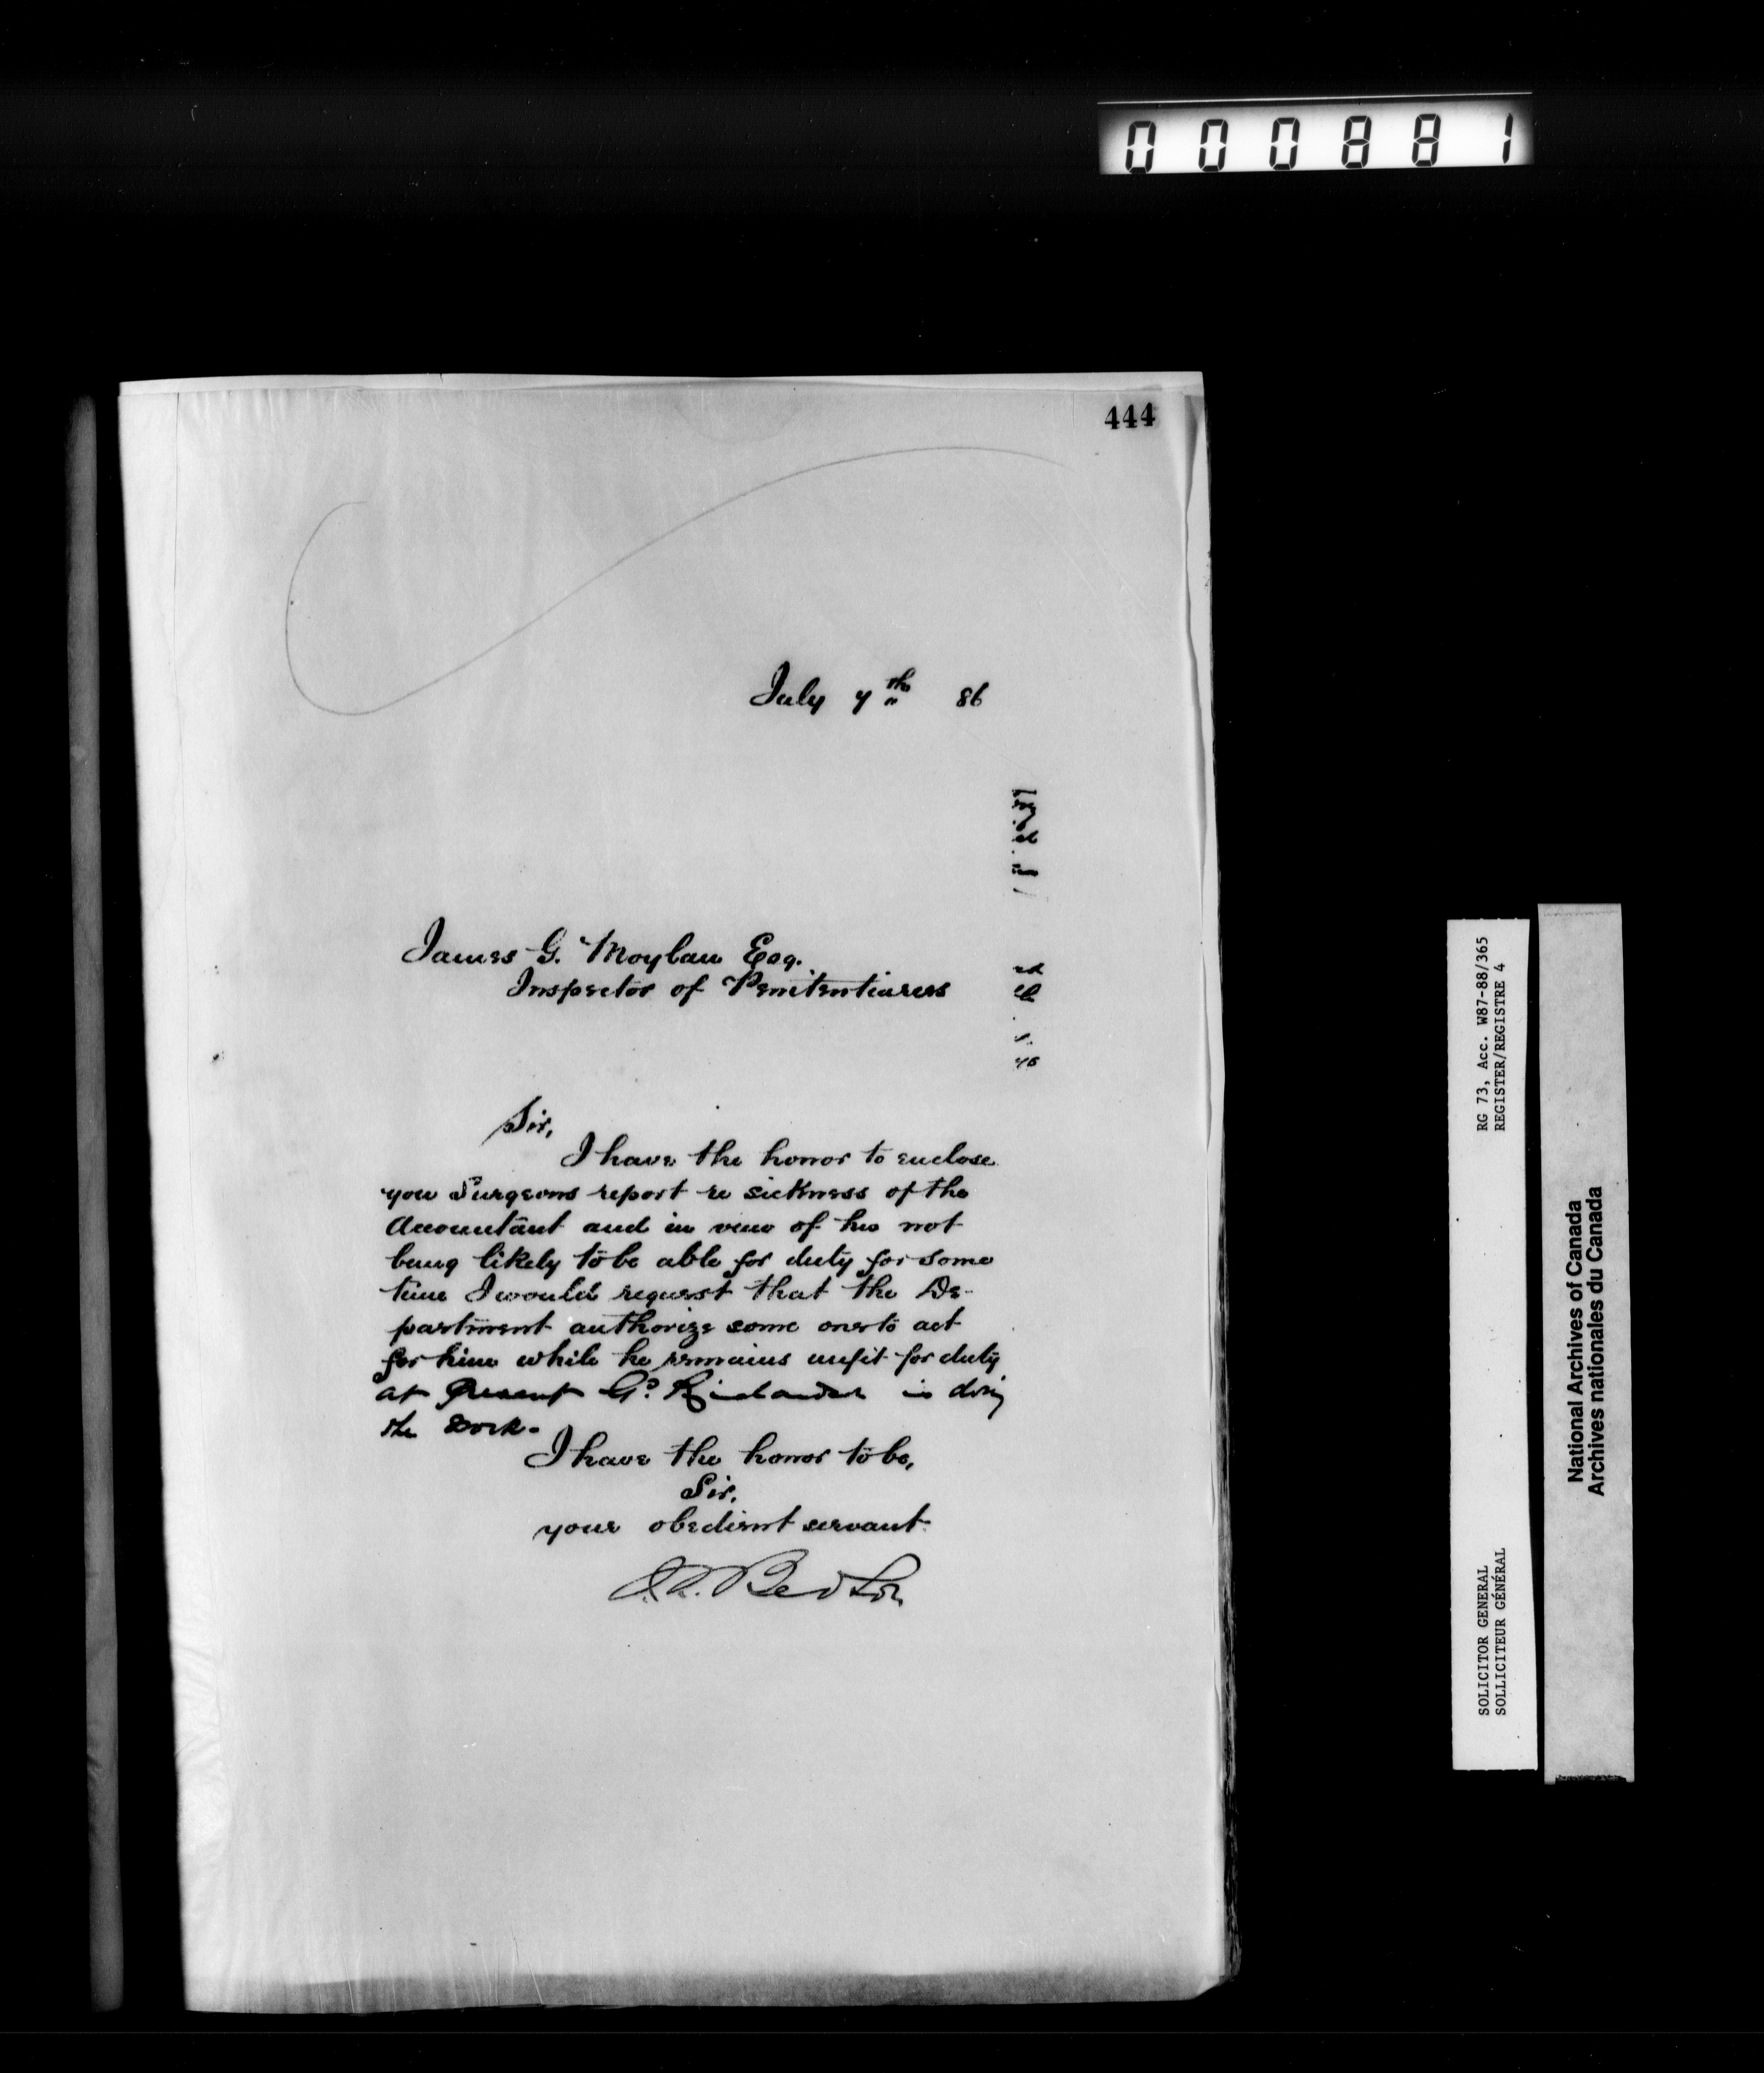 000881
444
July 7th 86
James G. Moylan Esq.
Inspector of Penitentiaries
Sir,
I have the honor to enclose
you Surgeons report re sickness of the
Accountant and in view of his not
being likely to be able for duty for some
time I would request that the De-
partment authorize some one to act
for him while he remains unfit for duty
at present Gd. is doing
the work.
I have the honor to be,
Sir,
your obedient servant
S.L. Bedson
RG 73, Acc. W87-88/365
REGISTER/REGISTRE 4
SOLICITOR GENERAL
SOLLICITEUR GÉNÉRAL
National Archives of Canada
Archives nationales du Canada